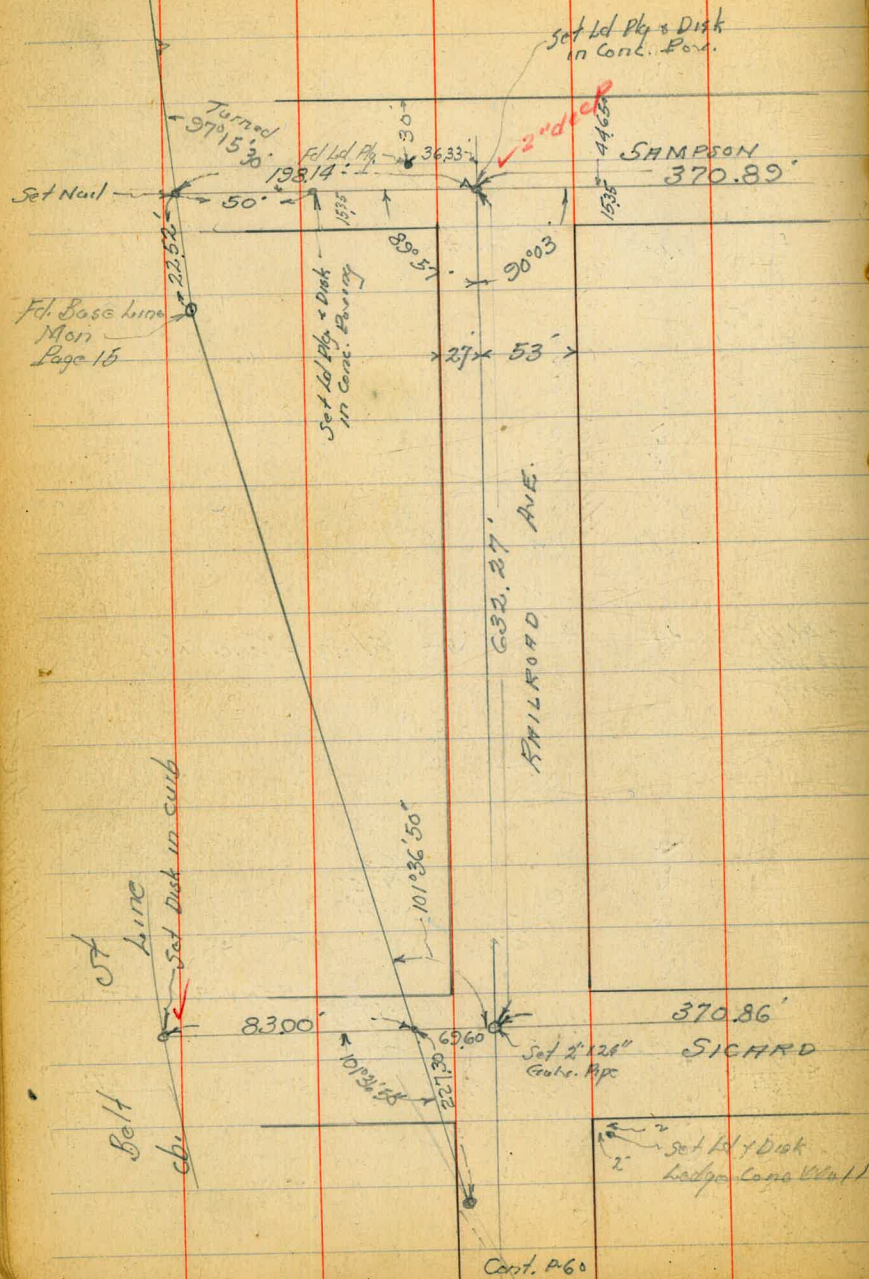 Set Ld Plg & Disk
in Conc. Pav.
2" deep
Turned
97°15'
30"
Fd Ld Plg
30
36.33
44.65
SAMPSON
198.14'
370.89'
Set Nail
50'
15.35
15.35
22.52'
89°57'
90°03'
Fd. Base Line
Mon
Page 15
Set Ld Plg & Disk
in Conc. Paving
27'
53'
632.27'
RAILROAD AVE.
101°36'50"
Set Disk in curb
St
Line
83.00'
69.60
370.86'
SICARD
Set 2" x 24"
Galv. Pipe
101°36'
227.30
Belt
cb.
2
2'
Set Ld & Disk
Ledge Conc Wall
Cont. P-60